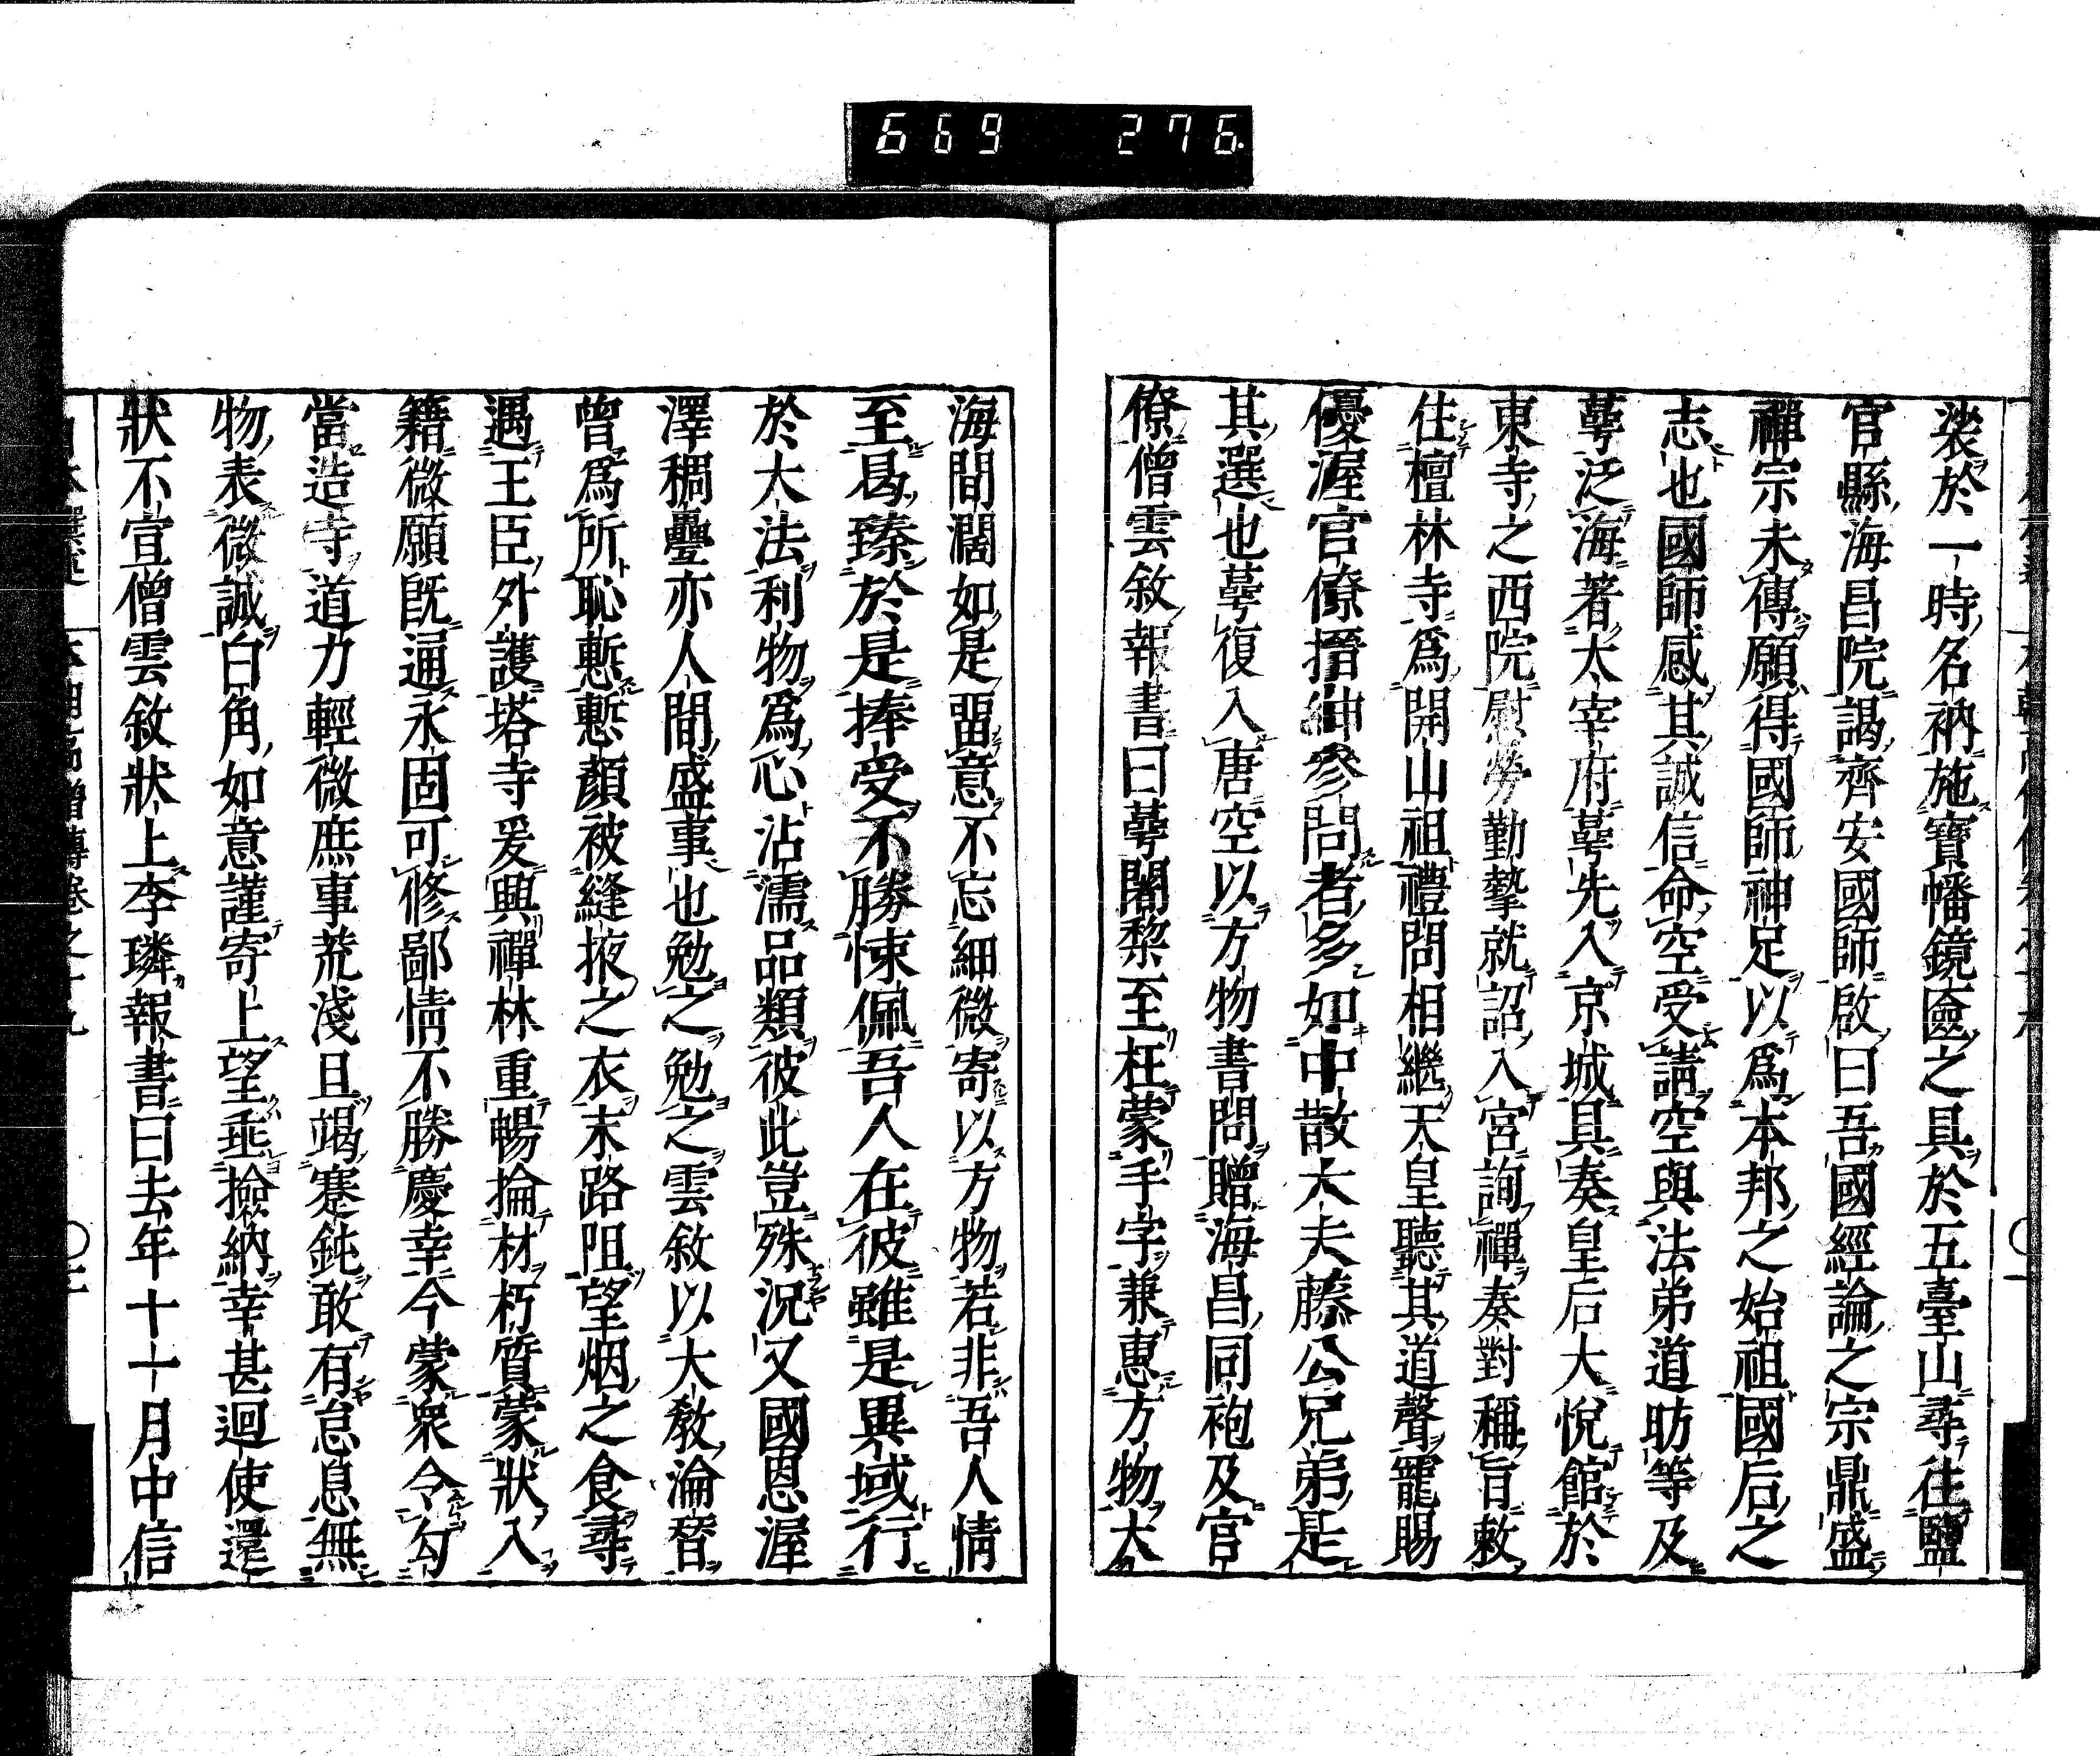 669 276
裟於一時名衲施寶幡鏡匳之具於五臺山尋往鹽
官縣海昌院謁齊安國師啟曰吾國經論之宗鼎盛
禪宗未傳願得國師神足以爲本邦之始祖國后之
志也國師感其誠信命空受請空與法弟道昉等及
萼泛海著太宰府萼先入京城具奏皇后大悅館於
東寺之西院慰勞勤摯就詔入宮詢禪奏對稱旨敕
住檀林寺爲開山祖禮問相繼天皇聽其道聲寵賜
優渥官僚搢紳參問者多如中散大夫藤公兄弟是
其選也萼復入唐空以方物書問贈海昌同袍及官
僚僧雲敘報書曰萼闍黎至枉蒙手字兼惠方物大
海間濶如是畱意不忘細微寄以方物若非吾人情
至曷臻於是捧受不勝悚佩吾人在彼雖是異域行
於大法利物爲心沾濡品類彼此豈殊況又國恩渥
澤稠疊亦人間盛事也勉之勉之雲敘以大教淪替
曾爲所恥慙慙顏被縫掖之衣末路阻望烟之食尋
遇王臣外護塔寺爰興禪林重暢掄材朽質蒙狀入
籍微願既逼永固可修鄙情不勝慶幸今蒙衆令勾
當造寺道力輕微庶事荒淺且竭蹇鈍敢有怠息無
物表微誠白角如意謹寄上望垂撿納幸甚迴使還
狀不宣僧雲敘狀上李璘報書曰去年十十月中信